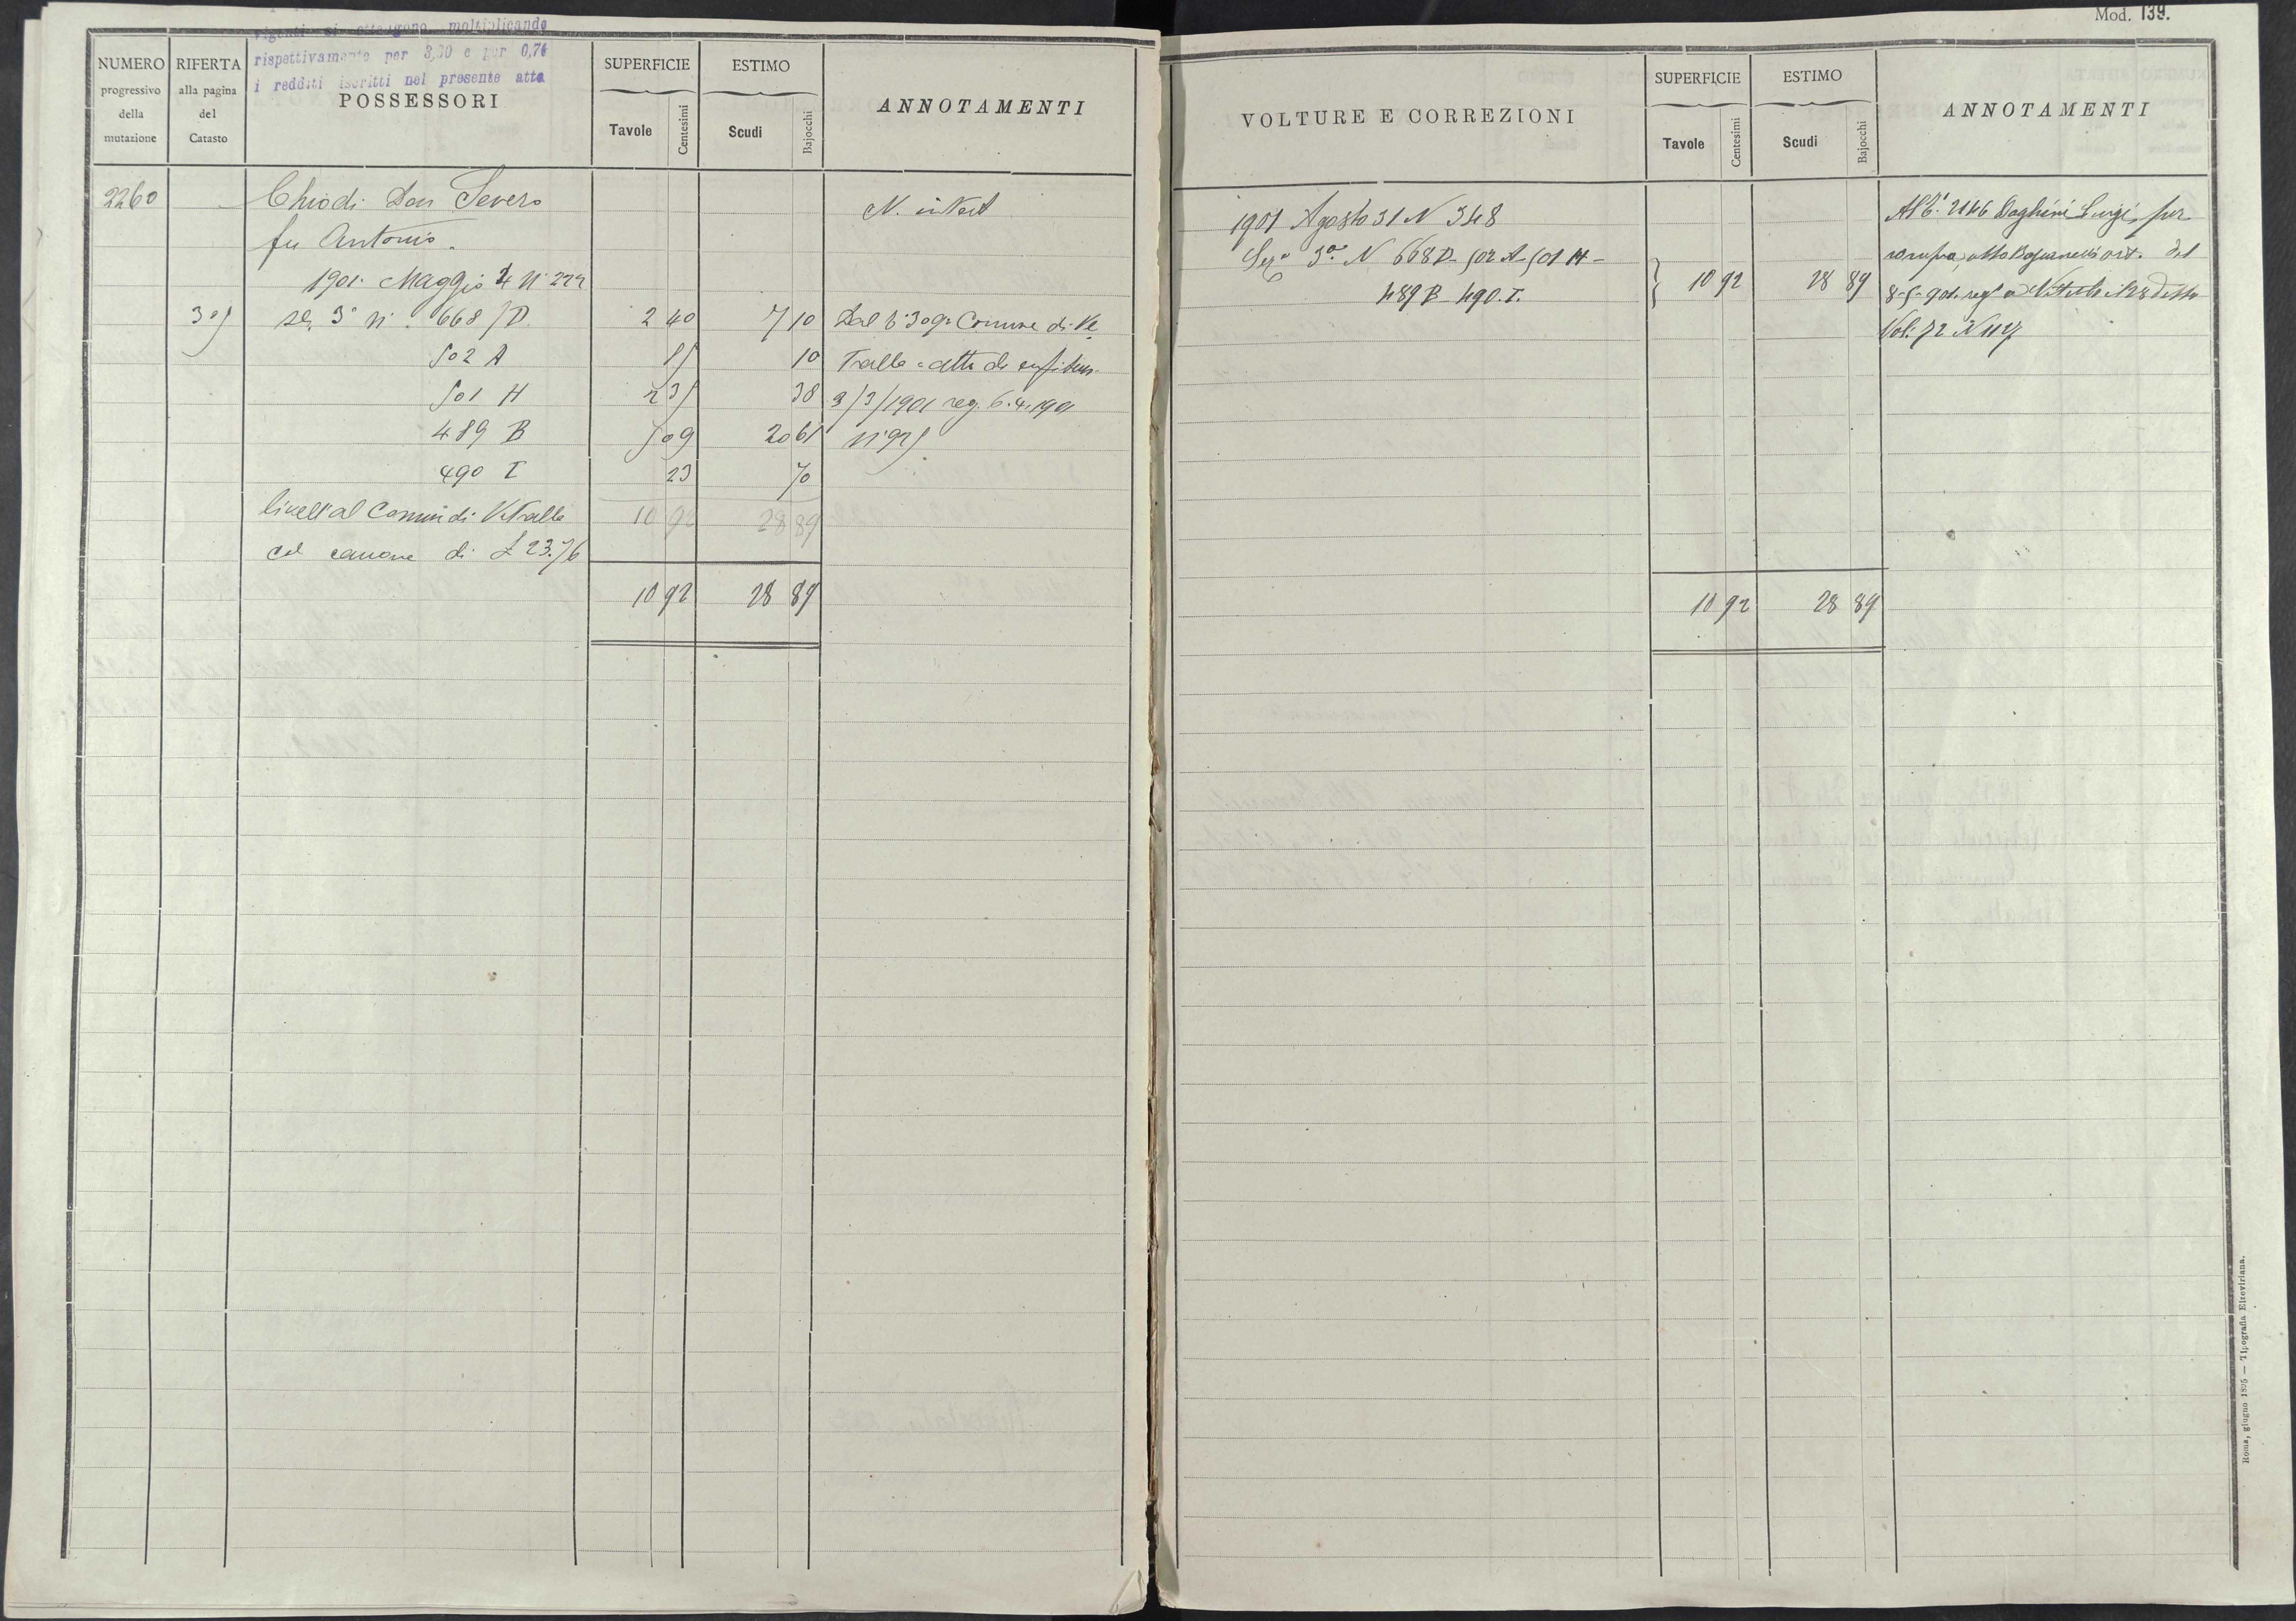 vigenti si ottengono moltiplicando
rispettivamente per 3,30 e per 0,74
i redditi iscritti nel presente atto
NUMERO progressivo della mutazione
RIFERTA alla pagina del Catasto
POSSESSORI
SUPERFICIE
Tavole Centesimi
ESTIMO
Scudi Bajocchi
ANNOTAMENTI
2260 Chiodi Don Severo
fu Antonio.
1901. Maggio 4 N° 222
305 Sez. 3ª N°. 668/D. 2 40 7 10 Dal
502 A 15 10
501 H 2 35 38 3/3/1901 reg. 6.4.1901
489 B 5 09 20 61 N° 925
490 I 23 70
livell° al Comun di Vetralla 10 92 28 89
col canone di £ 23.76
10 92 28 89
Mod. 139.
VOLTURE E CORREZIONI
SUPERFICIE
Tavole Centesimi
ESTIMO
Scudi Bajocchi
ANNOTAMENTI
1901 Agosto 31 N 348
Sezª 3ª N 668 D - 502 A - 501 H -
489 B - 490. I. 10 92 28 89
Luigi, per
compra, atto
Vol: 72 N 1127
10 92 28 89
Roma, giugno 1895 — Tipografia Elzeviriana.